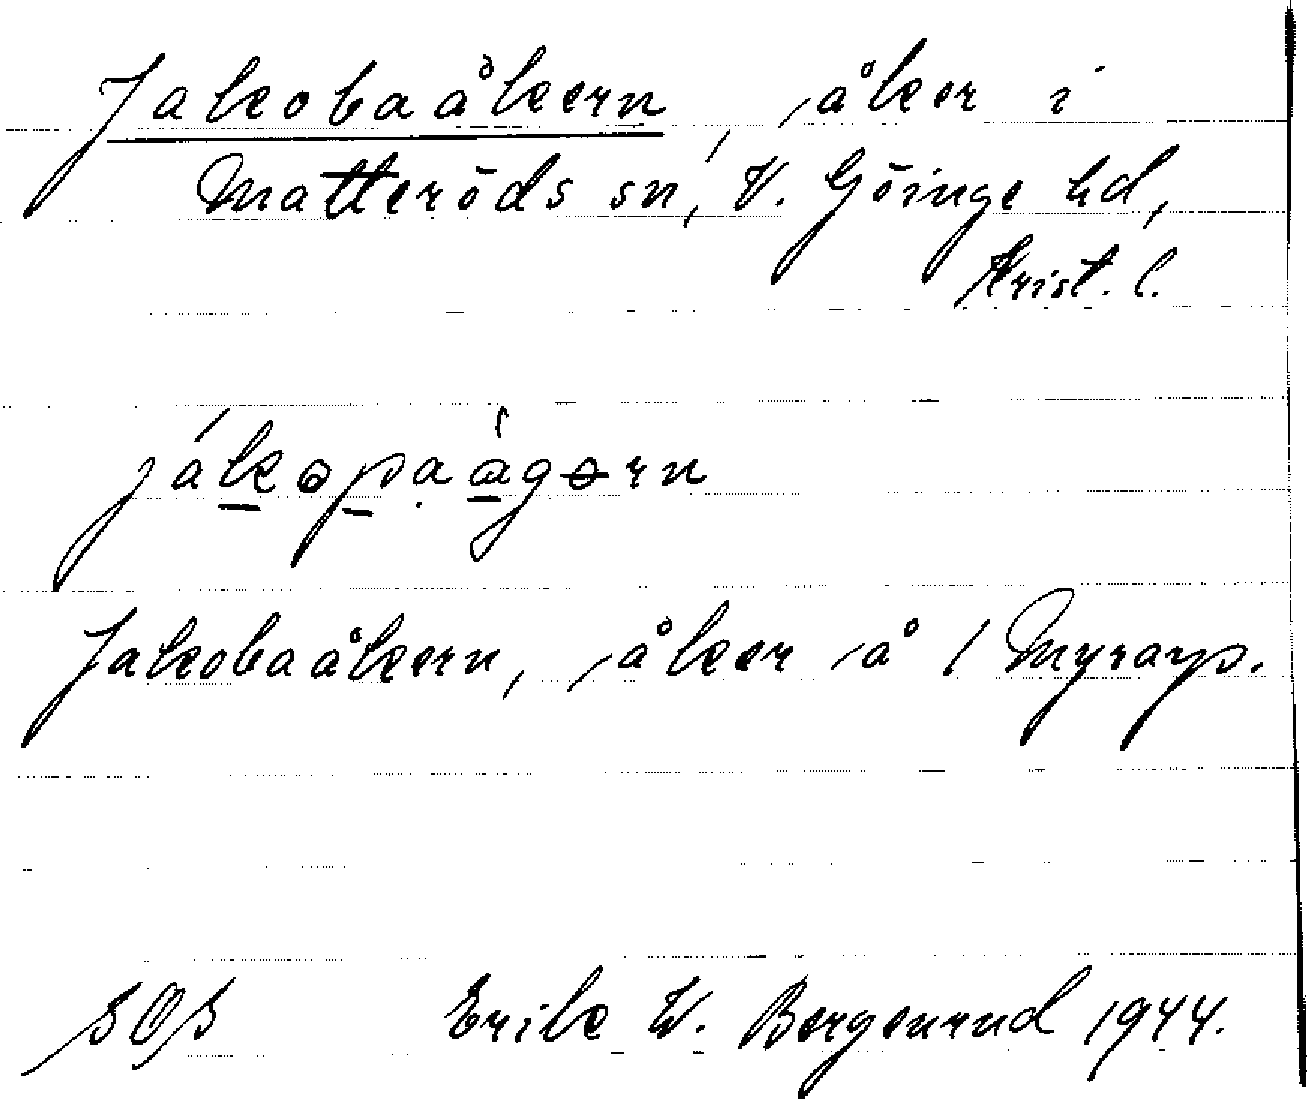 Jakobaåkern, åker i
Matteröds sn, V. Göinge hd,
Krist. l.
jákopaágərn
Jakobaåkern, åker å 1 Myrarp.
SOS Erik W. Bergenrud 1944.